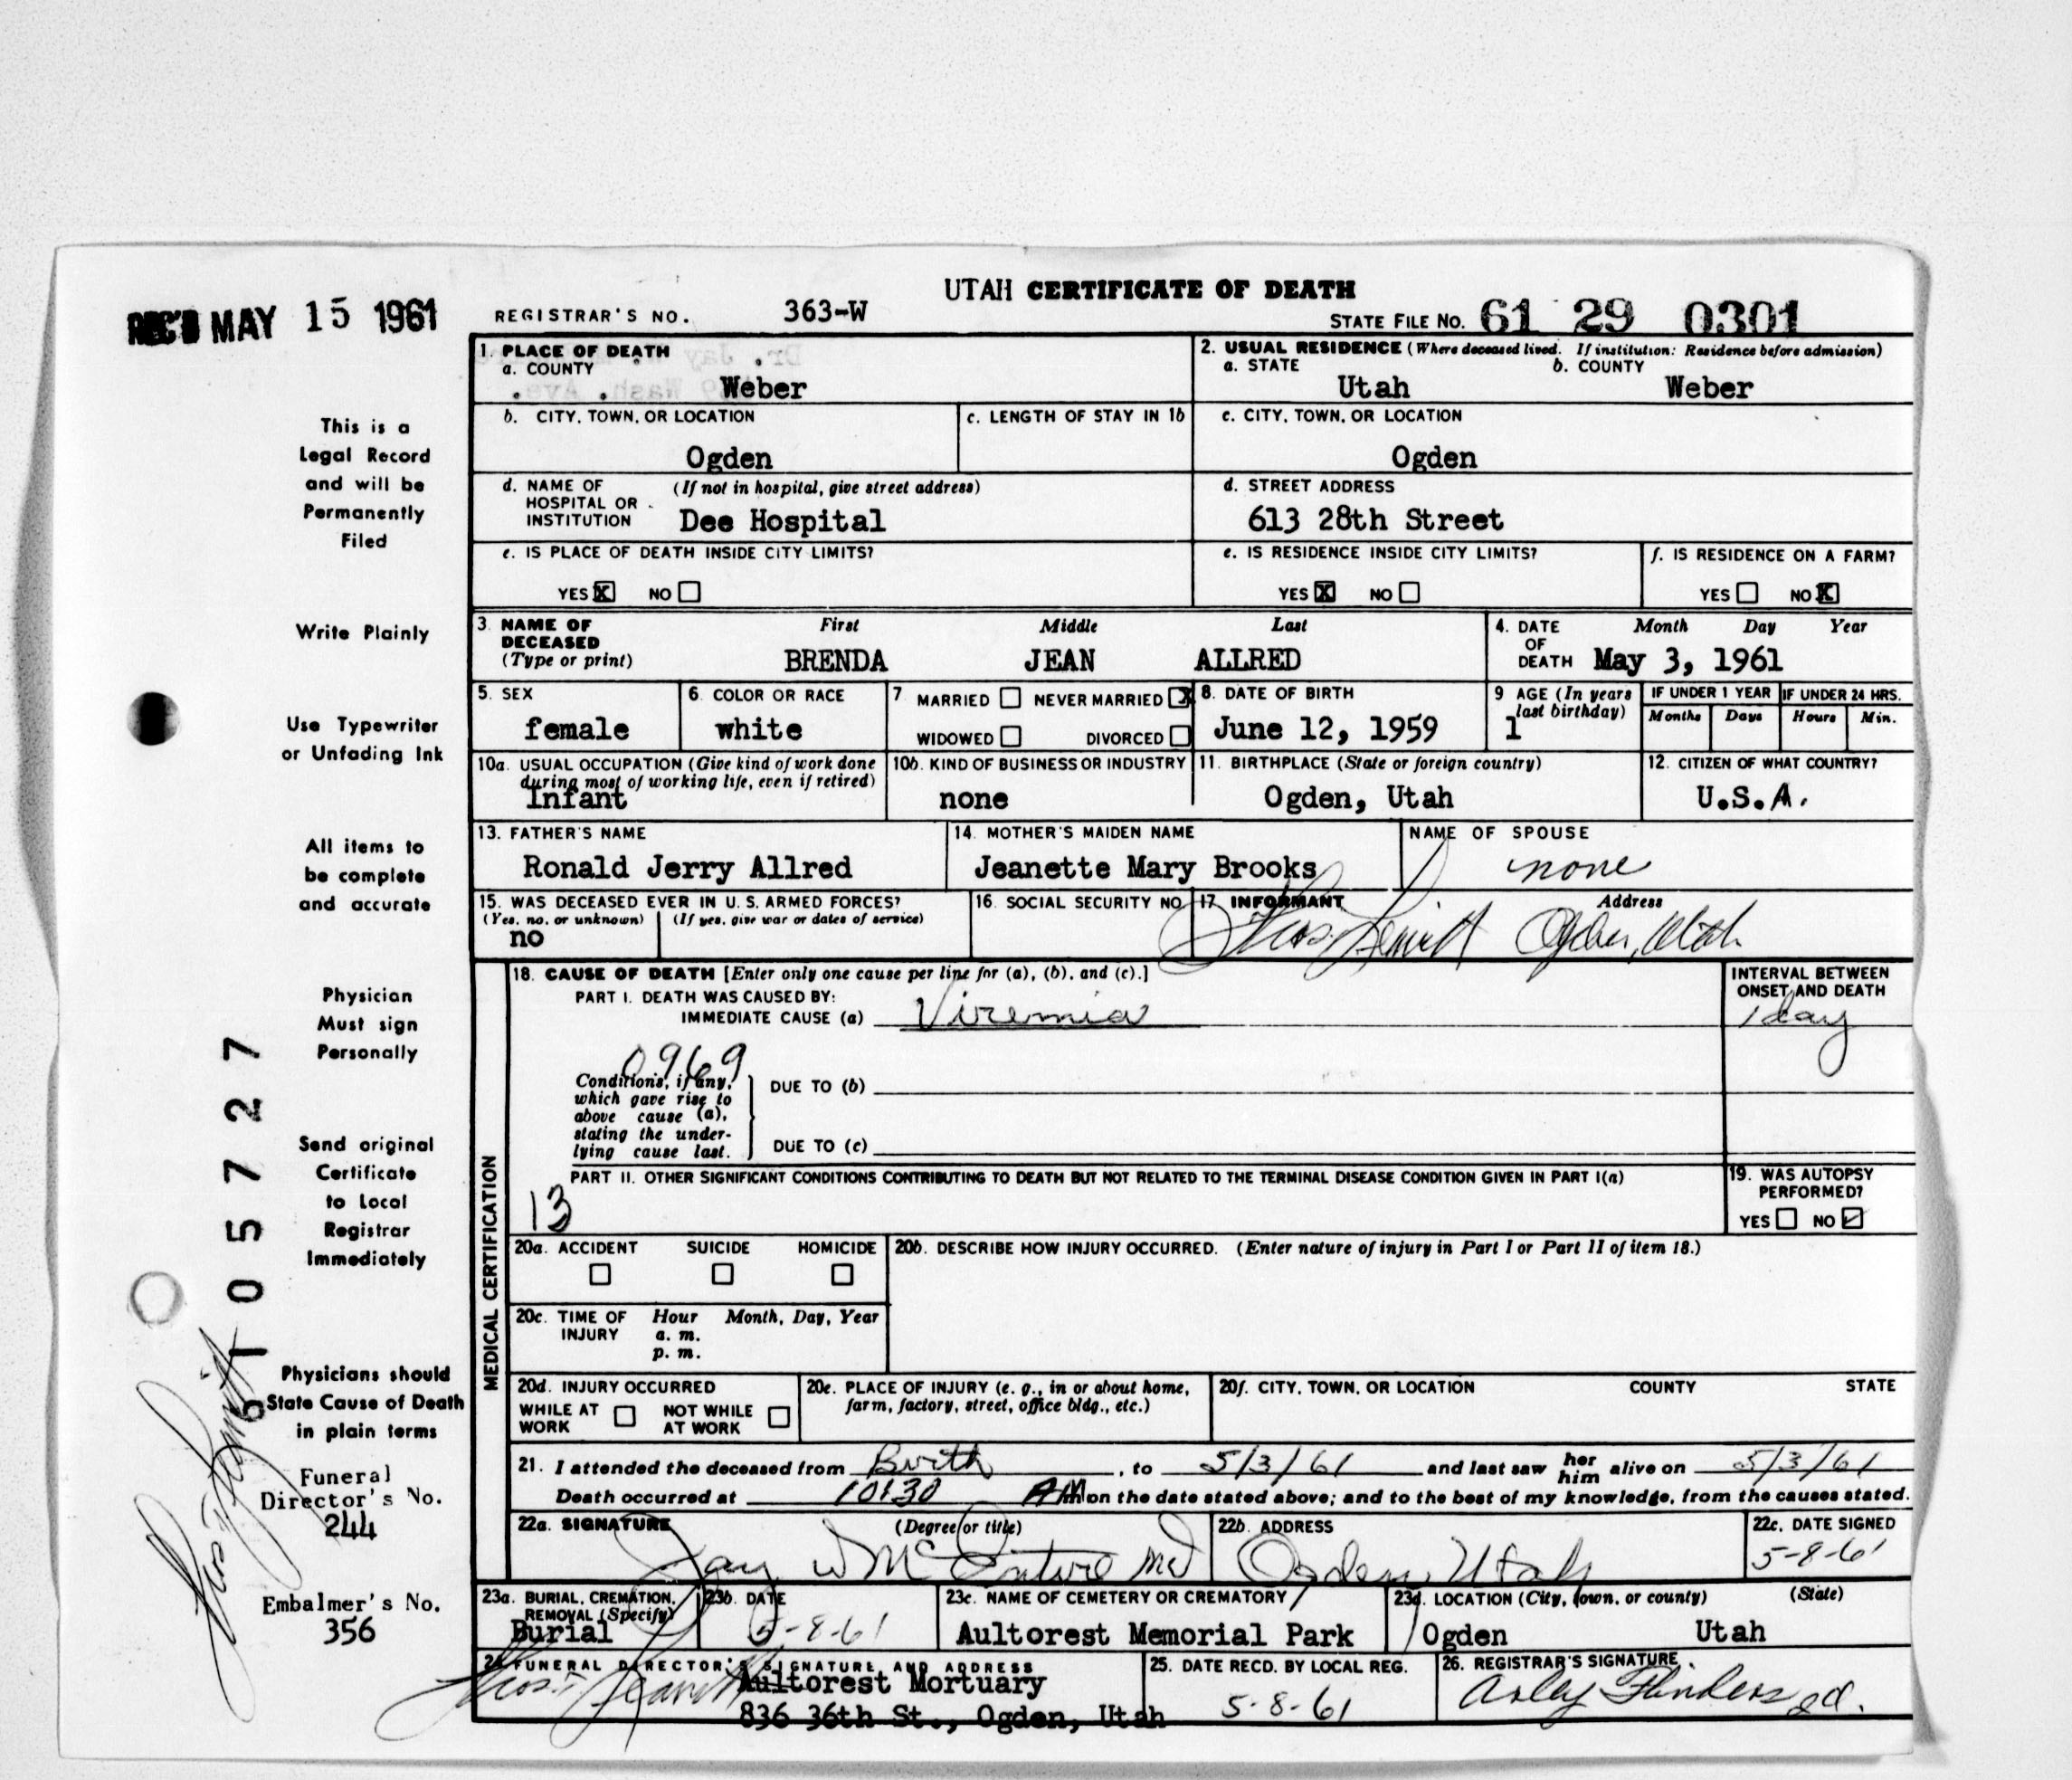 UTAH CERTIFICATE OF DEATH
REC'D MAY 15 1961
REGISTRAR'S NO. 363-W
STATE FILE NO. 61 29 0301
1. PLACE OF DEATH
a. COUNTY
Weber
2. USUAL RESIDENCE (Where deceased lived. If institution: Residence before admission)
a. STATE
Utah
b. COUNTY
Weber
b. CITY, TOWN, OR LOCATION
Ogden
c. LENGTH OF STAY IN 1b
c. CITY, TOWN, OR LOCATION
Ogden
d. NAME OF HOSPITAL OR INSTITUTION
(If not in hospital, give street address)
Dee Hospital
d. STREET ADDRESS
613 28th Street
e. IS PLACE OF DEATH INSIDE CITY LIMITS?
YES X NO
e. IS RESIDENCE INSIDE CITY LIMITS?
YES X NO
f. IS RESIDENCE ON A FARM?
YES NO X
3. NAME OF DECEASED
(Type or print)
First Middle Last
BRENDA JEAN ALLRED
4. DATE OF DEATH
Month Day Year
May 3, 1961
5. SEX
female
6. COLOR OR RACE
white
7 MARRIED NEVER MARRIED X
WIDOWED DIVORCED
8. DATE OF BIRTH
June 12, 1959
9 AGE (In years last birthday)
1
IF UNDER 1 YEAR
Months Days
IF UNDER 24 HRS.
Hours Min.
10a. USUAL OCCUPATION (Give kind of work done during most of working life, even if retired)
Infant
10b. KIND OF BUSINESS OR INDUSTRY
none
11. BIRTHPLACE (State or foreign country)
Ogden, Utah
12. CITIZEN OF WHAT COUNTRY?
U.S.A.
13. FATHER'S NAME
Ronald Jerry Allred
14. MOTHER'S MAIDEN NAME
Jeanette Mary Brooks
NAME OF SPOUSE
none
15. WAS DECEASED EVER IN U.S. ARMED FORCES?
(Yes, no, or unknown) (If yes, give war or dates of service)
no
16. SOCIAL SECURITY NO.
17. INFORMANT Address
Ogden, Utah
MEDICAL CERTIFICATION
18. CAUSE OF DEATH [Enter only one cause per line for (a), (b), and (c).]
PART I. DEATH WAS CAUSED BY:
IMMEDIATE CAUSE (a) Viremia
INTERVAL BETWEEN ONSET AND DEATH
1 day
0969
Conditions, if any, which gave rise to above cause (a), stating the underlying cause last.
DUE TO (b)
DUE TO (c)
PART II. OTHER SIGNIFICANT CONDITIONS CONTRIBUTING TO DEATH BUT NOT RELATED TO THE TERMINAL DISEASE CONDITION GIVEN IN PART I(a)
13
19. WAS AUTOPSY PERFORMED?
YES NO ✓
20a. ACCIDENT SUICIDE HOMICIDE
20b. DESCRIBE HOW INJURY OCCURRED. (Enter nature of injury in Part I or Part II of item 18.)
20c. TIME OF INJURY
Hour Month, Day, Year
a. m.
p. m.
20d. INJURY OCCURRED
WHILE AT WORK NOT WHILE AT WORK
20e. PLACE OF INJURY (e. g., in or about home, farm, factory, street, office bldg., etc.)
20f. CITY, TOWN, OR LOCATION COUNTY STATE
21. I attended the deceased from Birth, to 5/3/61 and last saw her him alive on 5/3/61
Death occurred at 10:30 AM on the date stated above; and to the best of my knowledge, from the causes stated.
22a. SIGNATURE (Degree or title)
Jay W McEntire MD
22b. ADDRESS
Ogden Utah
22c. DATE SIGNED
5-8-61
23a. BURIAL, CREMATION, REMOVAL (Specify)
Burial
23b. DATE
5-8-61
23c. NAME OF CEMETERY OR CREMATORY
Aultorest Memorial Park
23d. LOCATION (City, town, or county) (State)
Ogden Utah
24 FUNERAL DIRECTOR'S SIGNATURE AND ADDRESS
Aultorest Mortuary
836 36th St., Ogden, Utah
25. DATE RECD. BY LOCAL REG.
5-8-61
26. REGISTRAR'S SIGNATURE
Arley Flinders
This is a
Legal Record
and will be
Permanently
Filed
Write Plainly
Use Typewriter
or Unfading Ink
All items to
be complete
and accurate
Physician
Must sign
Personally
Send original
Certificate
to Local
Registrar
Immediately
Physicians should
State Cause of Death
in plain terms
Funeral
Director's No.
244
Embalmer's No.
356
6 1 0 5 7 2 7